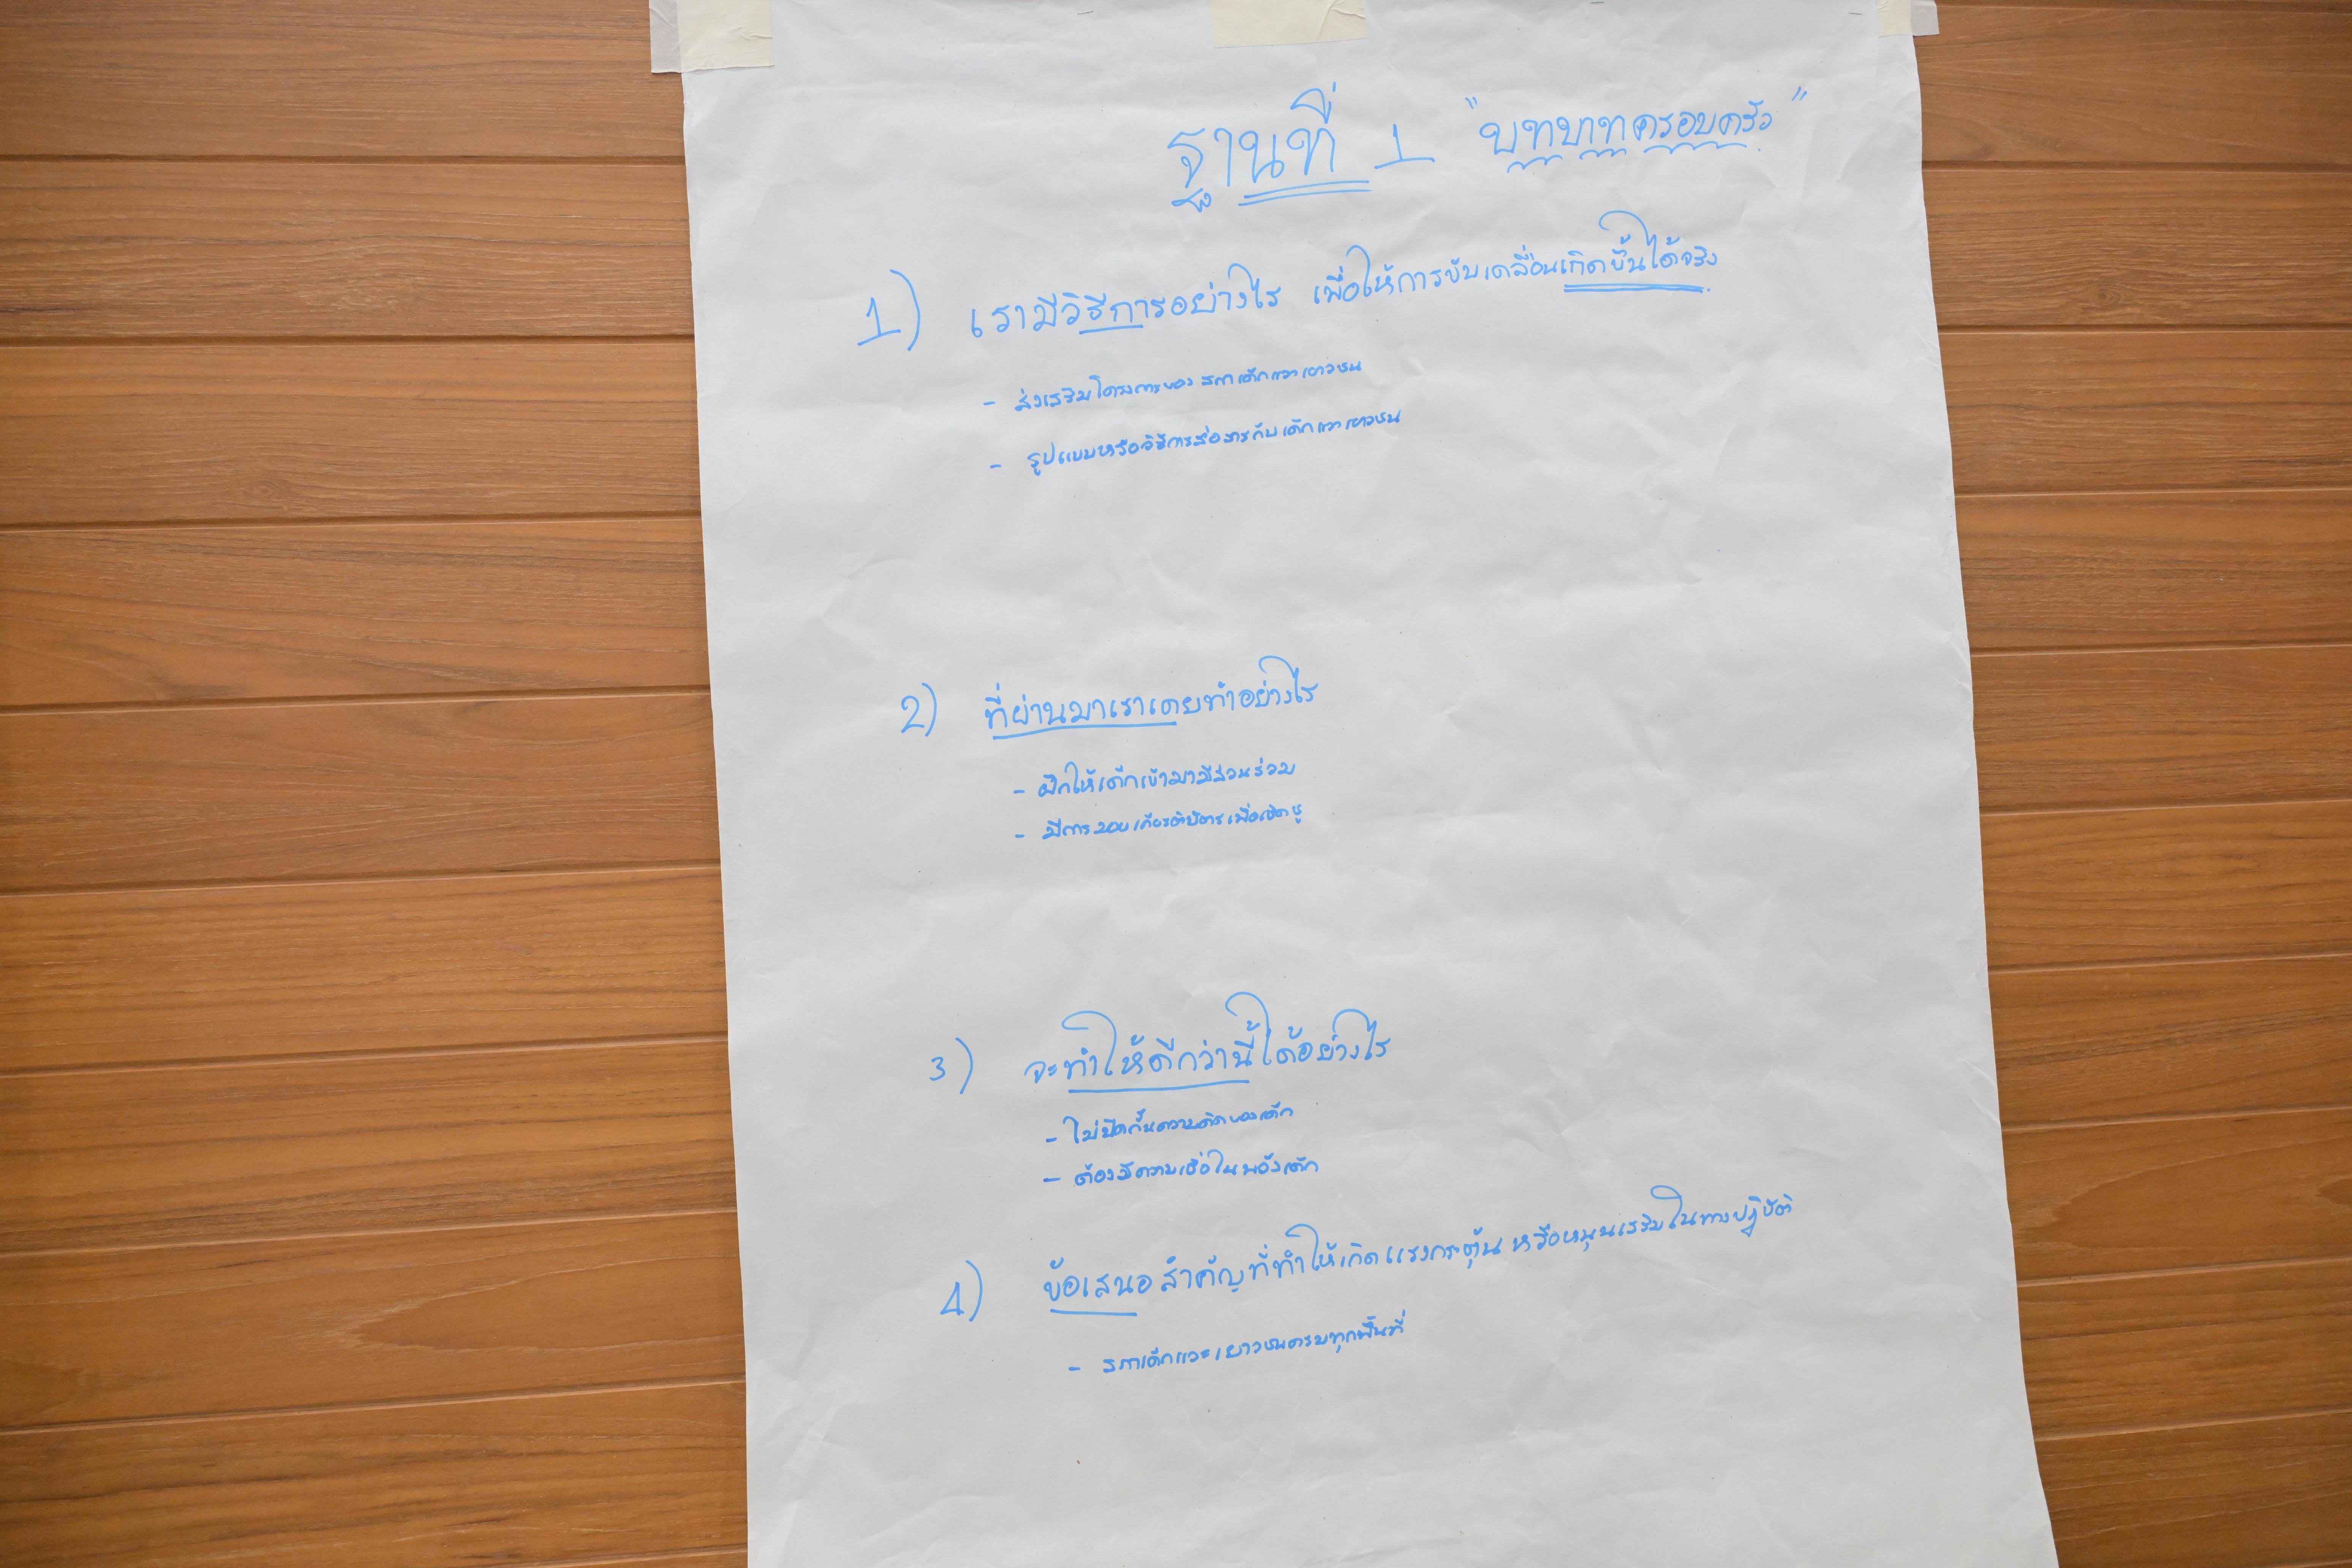 ฐานที่ 1 "บทบาทครอบครัว"
1) เรามีวิธีการอย่างไร เพื่อให้การขับเคลื่อนเกิดขึ้นได้จริง
- ส่งเสริมโครงการของ สภาเด็กและเยาวชน
- รูปแบบหรือวิธีการสื่อสารกับเด็กและเยาวชน
2) ที่ผ่านมาเราเคยทำอย่างไร
- ฝึกให้เด็กเข้ามามีส่วนร่วม
- มีการมอบเกียรติบัตรเพื่อเชิดชู
3) จะทำให้ดีกว่านี้ได้อย่างไร
- ไม่ปิดกั้นความคิดของเด็ก
- ต้องมีความเชื่อในพลังเด็ก
4) ข้อเสนอสำคัญที่ทำให้เกิดแรงกระตุ้น หรือหนุนเสริมในทางปฏิบัติ
- สภาเด็กและเยาวชนครบทุกพื้นที่